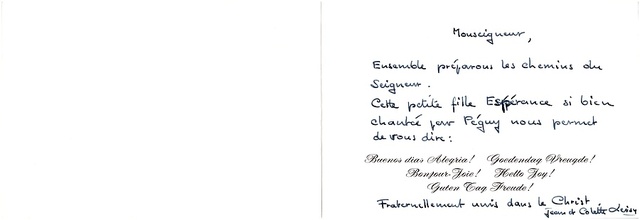 Monseigneur,
Ensemble préparons les chemins du
Seigneur.
Cette petite fille Espérance si bien
chantée par Péguy nous permet
de vous dire :
Buenos dias Alegria! Goedendag Vreugde!
Bonjour Joie! Hello Joy!
Guten Tag Freude!
Fraternellement unis dans le Christ.
Jean et Colette